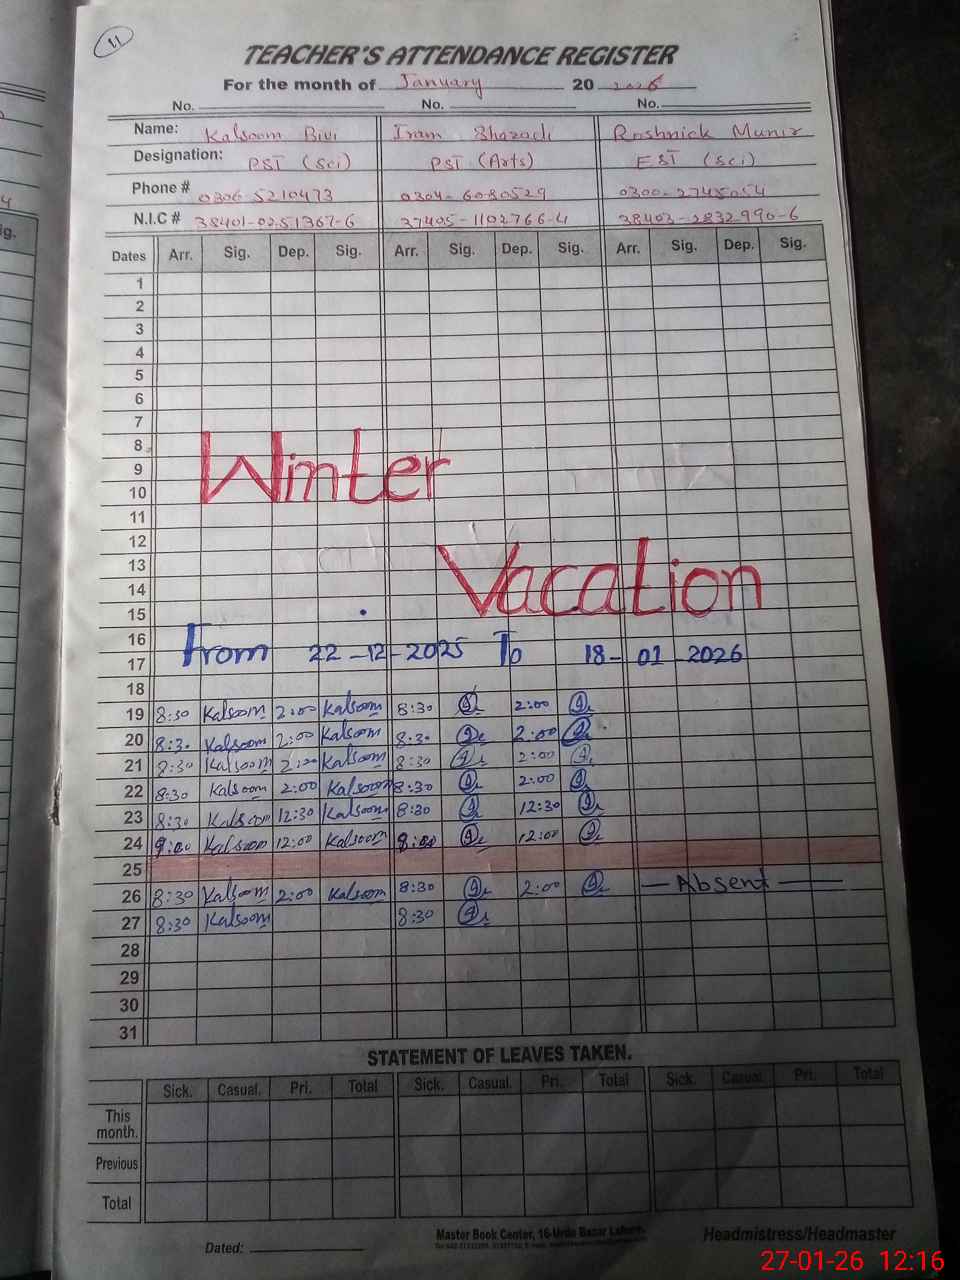 11
TEACHER'S ATTENDANCE REGISTER
For the month of January 20 2026
No. No. No.
Name: Kalsoom Bivi Iram Shazadi Roshnick Munir
Designation: PST (Sci) PST (Arts) EST (Sci)
Phone # 0306 5210473 0304-6080529 0300-2745054
N.I.C # 38401-0251367-6 37405-1102766-4 38403-2832990-6
Dates Arr. Sig. Dep. Sig. Arr. Sig. Dep. Sig. Arr. Sig. Dep. Sig.
1
2
3
4
5
6
7
8
9
10
Winter
11
12
13
14
15
Vacation
16
17
From 22-12-2025 To 18-01-2026
18
19 8:30 Kalsoom 2:00 Kalsoom 8:30 2:00
20 8:30 Kalsoom 2:00 Kalsoom 8:30 2:00
21 8:30 Kalsoom 2:00 Kalsoom 8:30 2:00
22 8:30 Kalsoom 2:00 Kalsoom 8:30 2:00
23 8:30 Kalsoom 12:30 Kalsoom 8:30 12:30
24 9:00 Kalsoom 12:00 Kalsoom 12:00
25
26 8:30 Kalsoom 2:00 Kalsoom 8:30 2:00 — Absent —
27 8:30 Kalsoom 8:30
28
29
30
31
STATEMENT OF LEAVES TAKEN.
Sick. Casual. Pri. Total Sick. Casual. Pri. Total Sick. Casual. Pri. Total
This month.
Previous
Total
Master Book Center, 16-Urdu Bazar Lahore.
Dated: Headmistress/Headmaster
27-01-26 12:16